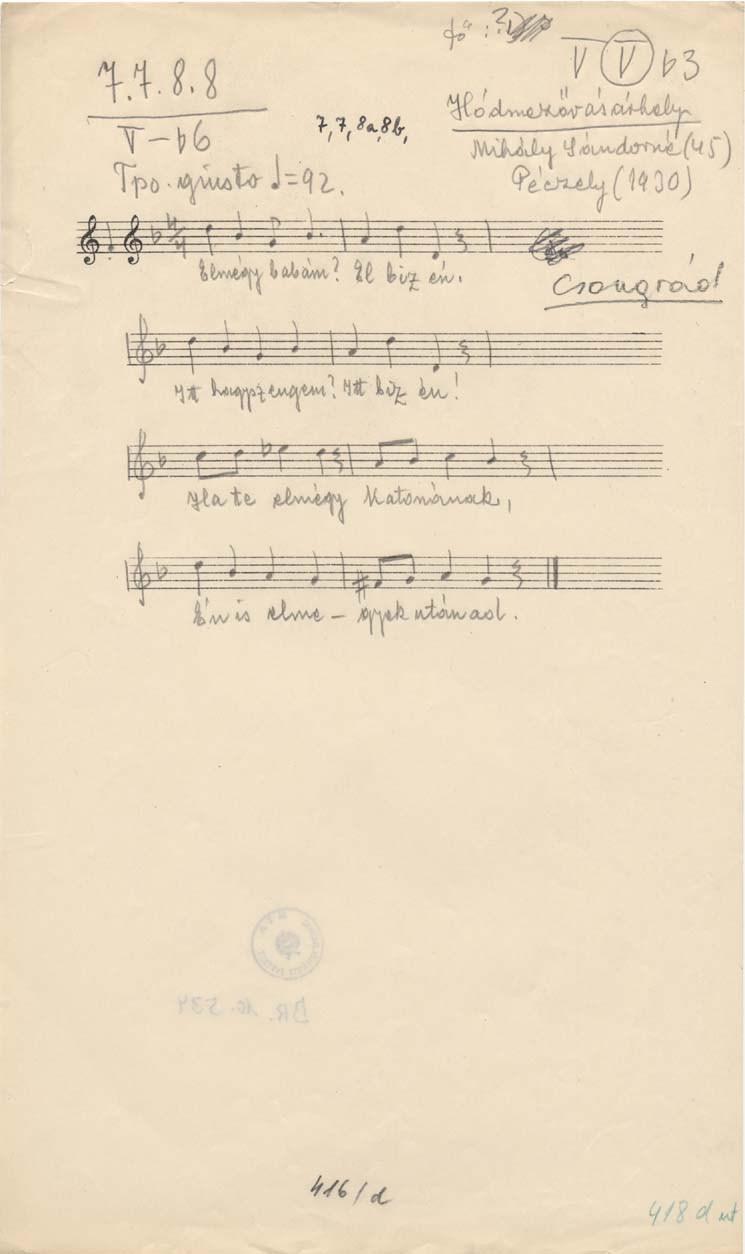 7.7.8.8
V V ♭3
V–♭6
7, 7, 8a, 8b,
Hódmezővásárhely
Mihály Sándorné (45)
Tpo. giusto ♩=92.
Péczely (1930)
Csongrád
Elmégy babám? El biz én.
Itt hagysz engem? Itt biz én!
Ha te elmégy katonának,
Én is elme – gyek utánad.
BR. 10.534
416/d
418 d